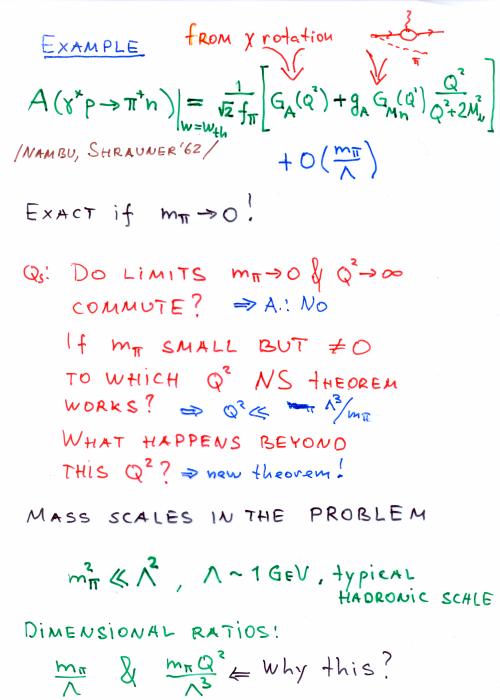 EXAMPLE
from χ rotation
A(γ*p→π⁺n)|_{W=W_th} = 1/(√2 f_π) [G_A(Q²) + g_A G_Mn(Q²) Q²/(Q²+2M_N²)]
/NAMBU, SHRAUNER '62/
+ O(m_π/Λ)
EXACT if m_π → 0!
Qs: DO LIMITS m_π→0 & Q²→∞
COMMUTE? ⇒ A.: No
If m_π SMALL BUT ≠ 0
TO WHICH Q² NS THEOREM
WORKS? ⇒ Q² ≪ Λ³/m_π
WHAT HAPPENS BEYOND
THIS Q²? ⇒ new theorem!
MASS SCALES IN THE PROBLEM
m_π² ≪ Λ², Λ ~ 1 GeV, typical
HADRONIC SCALE
DIMENSIONAL RATIOS:
m_π/Λ & m_π Q²/Λ³ ⇐ Why this?